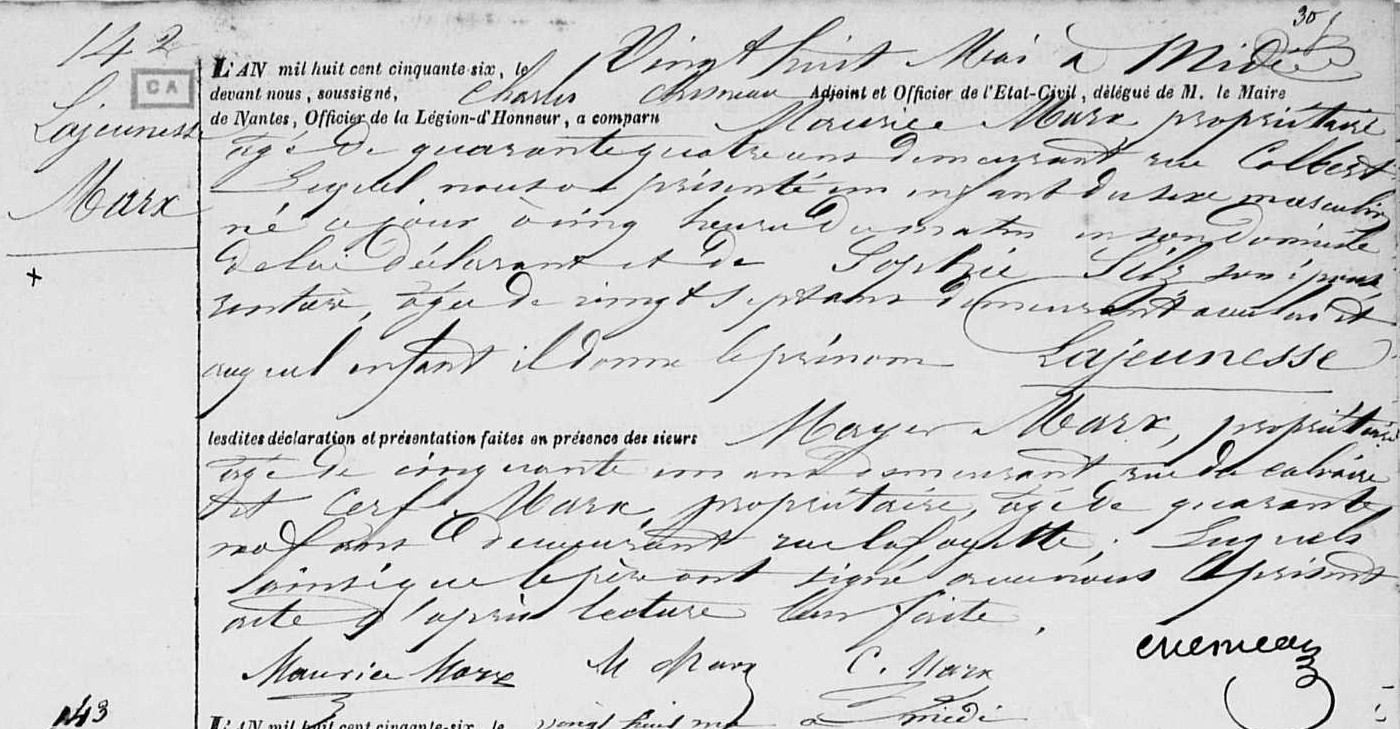 30
142
CA
Lajeunesse
Marx
L'AN mil huit cent cinquante-six, le Vingt huit Mai à Midi
devant nous, soussigné, Charles Chesneau Adjoint et Officier de l'Etat-Civil, délégué de M. le Maire
de Nantes, Officier de la Légion-d'Honneur, a comparu Maurice Marx, propriétaire
âgé de quarante quatre ans demeurant rue Colbert
Lequel nous a présenté un enfant du sexe masculin
né ce jour à cinq heures du matin en son domicile
de lui déclarant et de Sophie son épouse,
rentière, âgée de vingt sept ans demeurant avec lui et
auquel enfant il donne le prénom Lajeunesse
lesdites déclaration et présentation faites en présence des sieurs Mayer Marx, propriétaire
âgé de cinquante un ans demeurant rue du calvaire
Et Cerf Marx, propriétaire, âgé de quarante
neuf ans demeurant rue lafayette; Lesquels
ainsi que le père ont signé avec nous le présent
acte d'après lecture leur faite.
Maurice Marx M Marx C. Marx Chesneau
143
L'AN mil huit cent cinquante-six, le vingt huit mai à midi